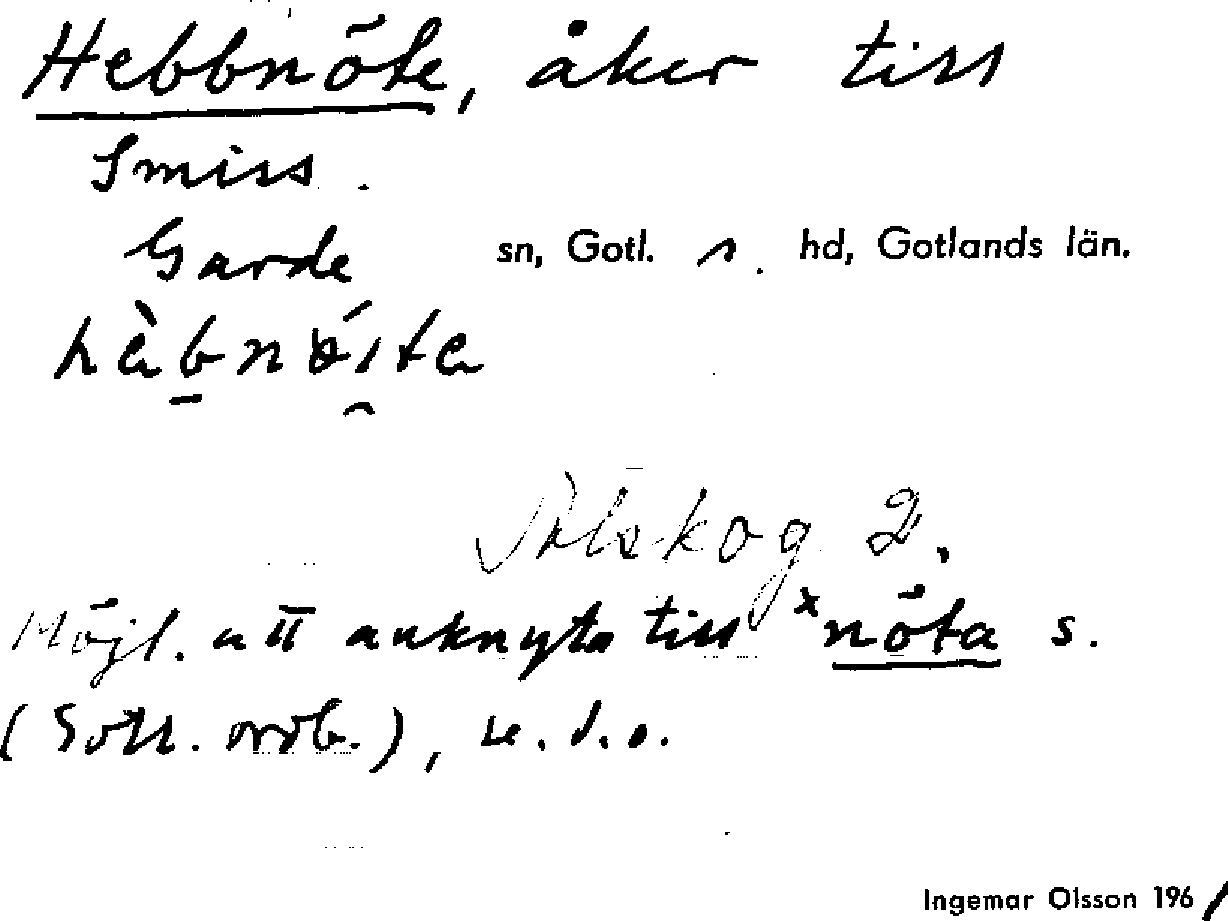 Hebbnöte, åker till
Smiss.
Garde sn, Gotl. s. hd, Gotlands län.
hàbnǿita
Ålskog 2.
Möjl. att anknyta till ˣnöta s.
(Gotl. ordb.), se. d. o.
Ingemar Olsson 1961